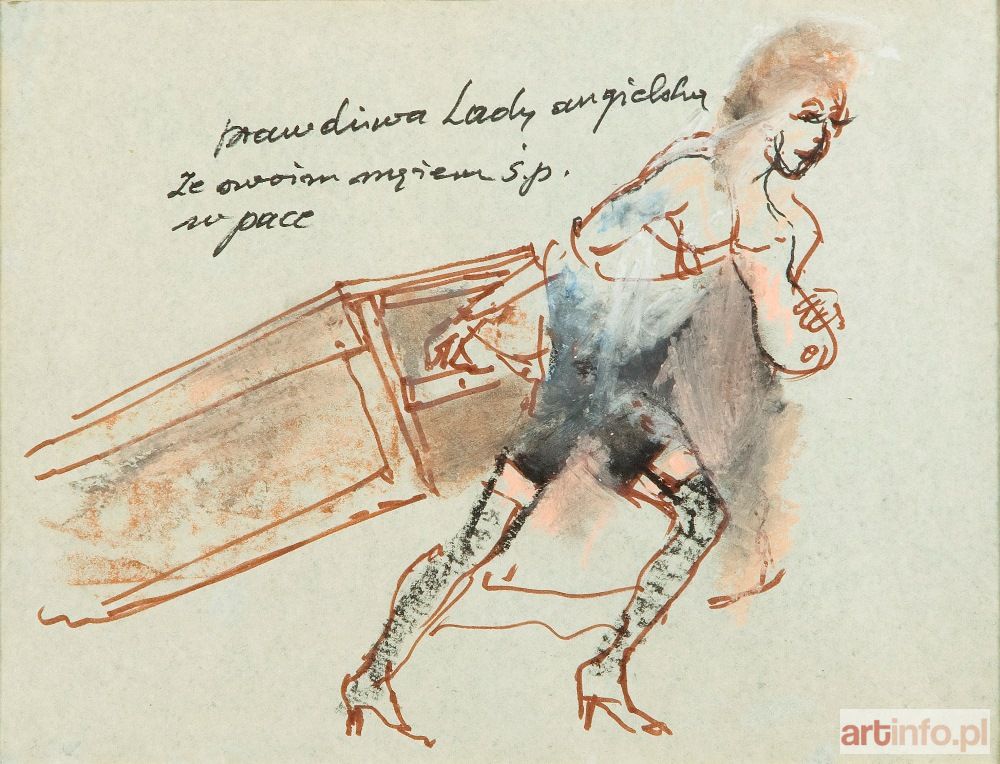 prawdziwa Lady angielska
ze swoim mężem ś.p.
w pace
artinfo.pl